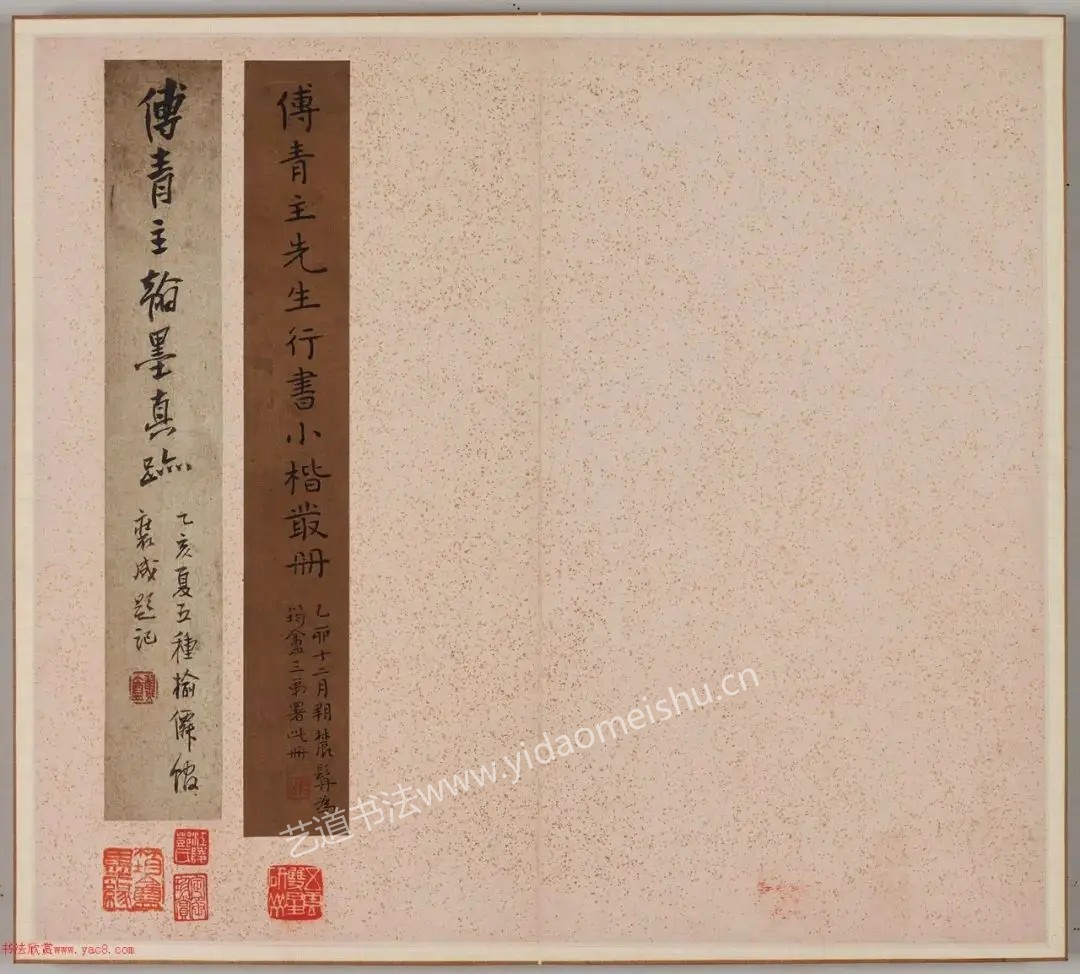 傅青主先生行書小楷叢册
乙卯十二月朔
三弟署此冊
傅青主翰墨真跡
乙亥夏五種榆僊館
襄成題記
艺道书法www.yidaomeishu.cn
书法欣赏www.yac8.com